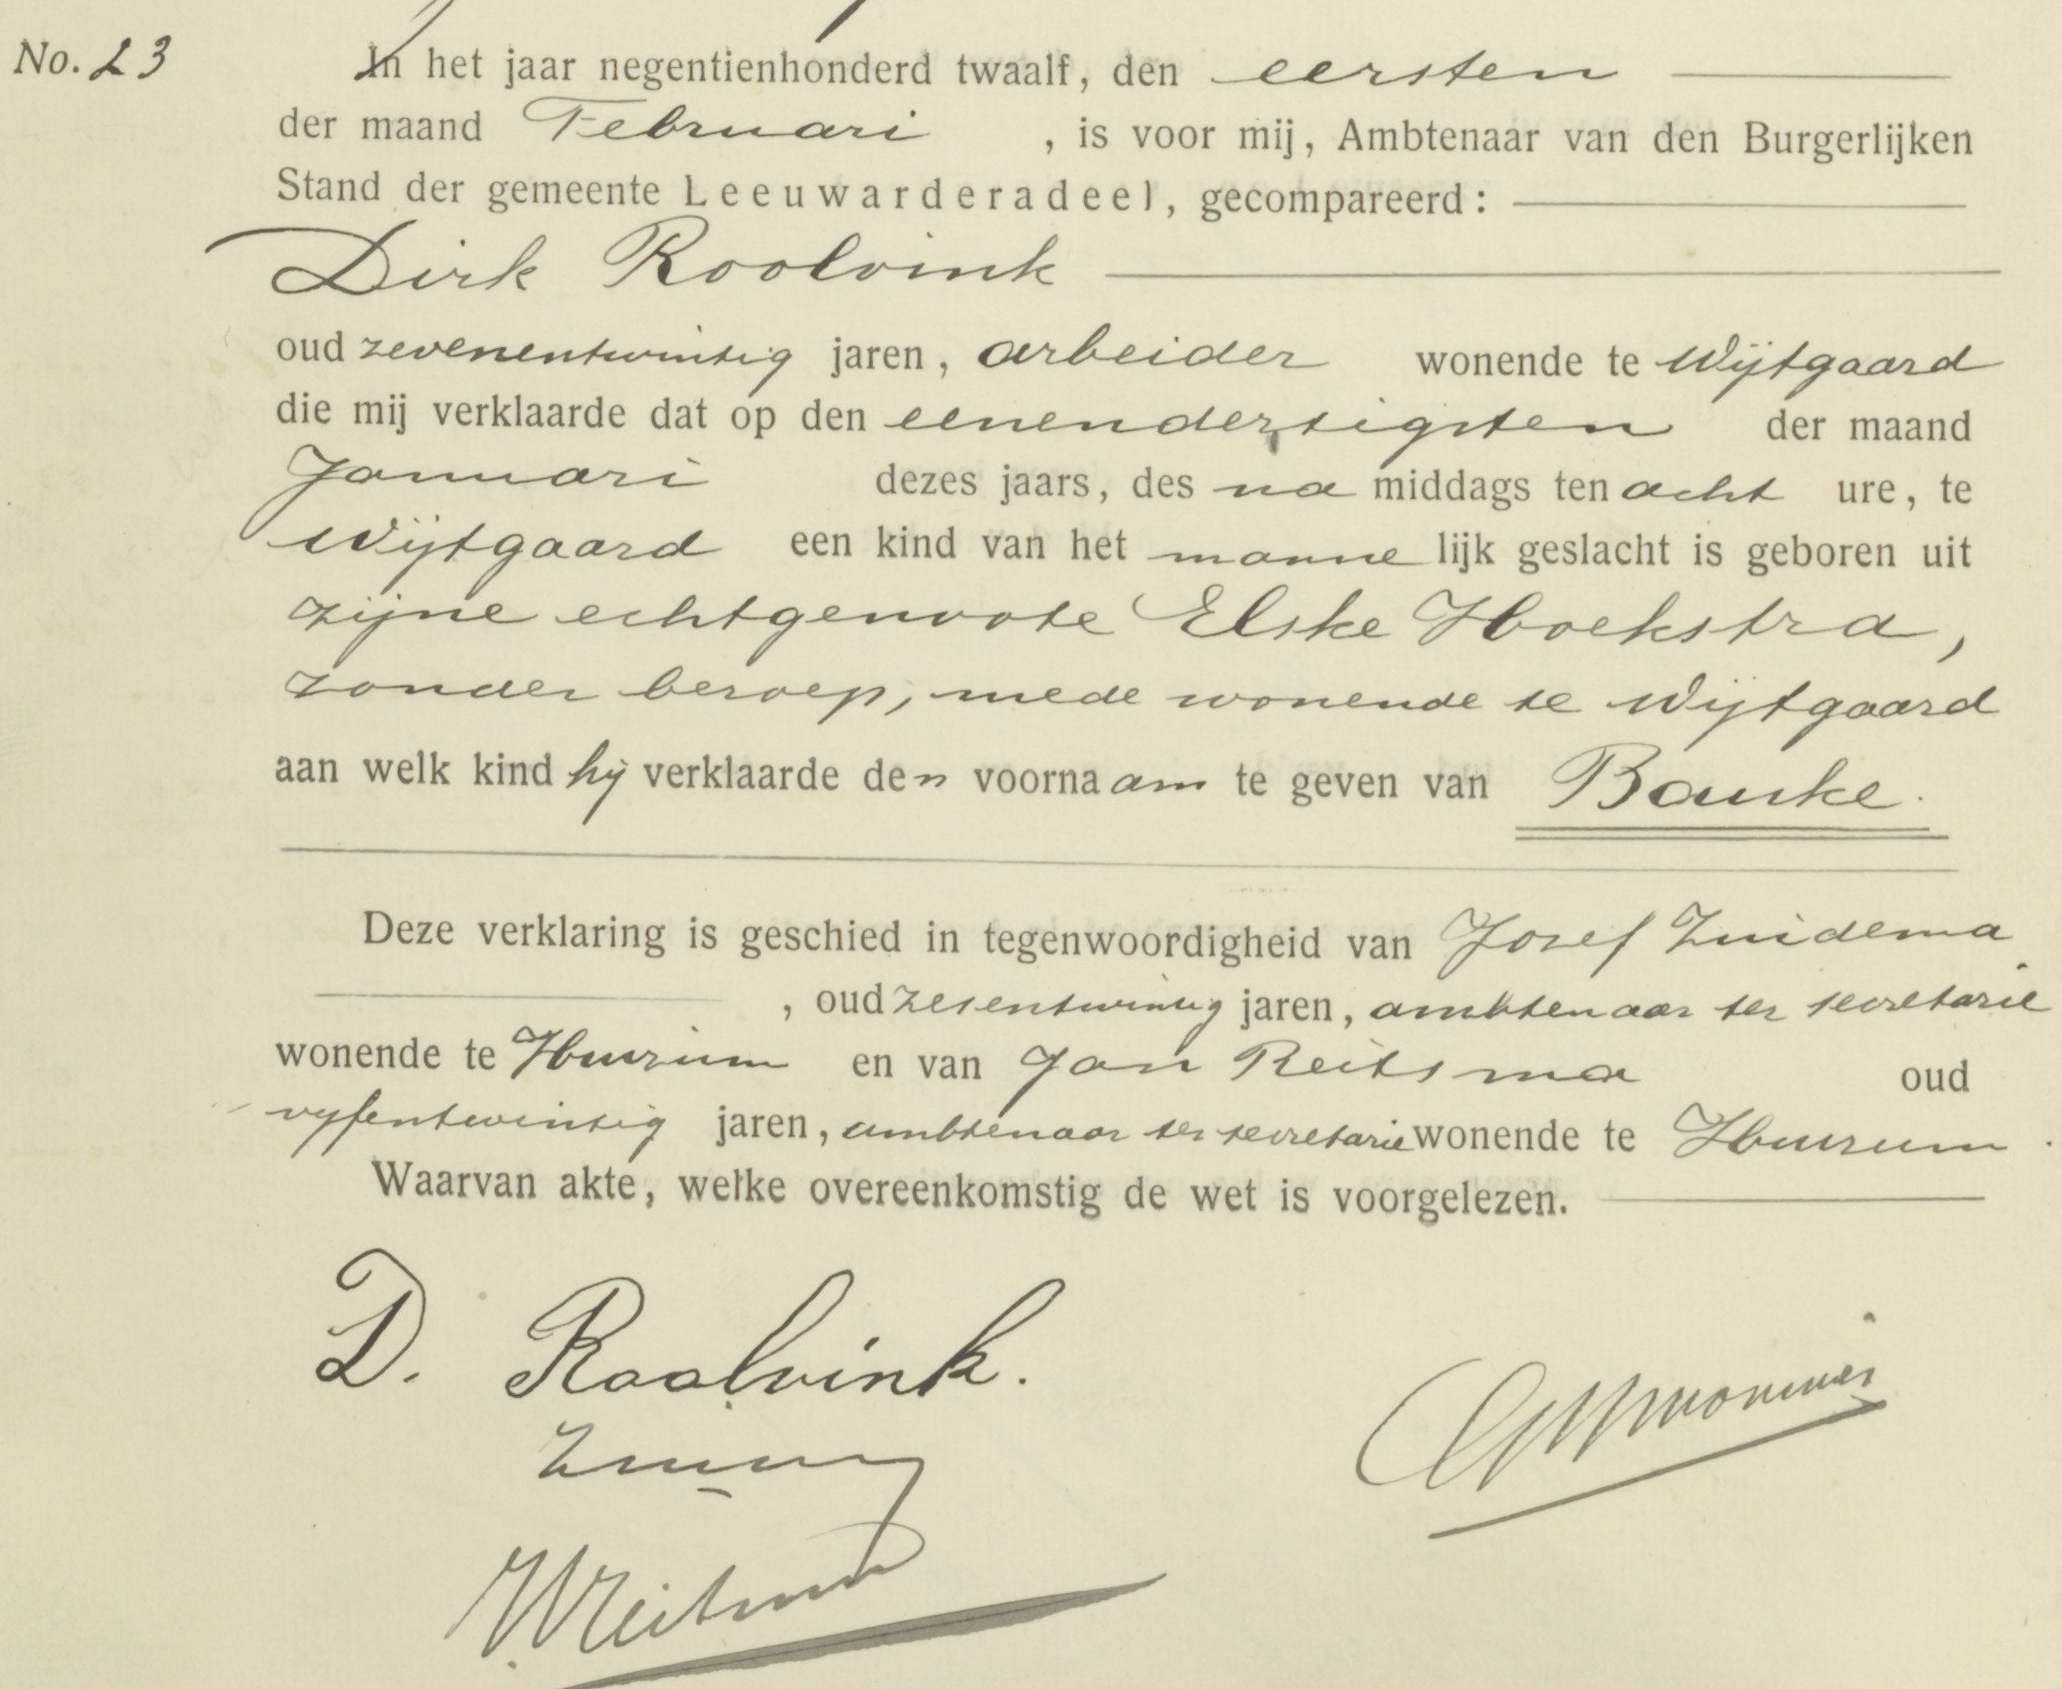 No. 23
In het jaar negentienhonderd twaalf, den eersten
der maand Februari , is voor mij, Ambtenaar van den Burgerlijken
Stand der gemeente Leeuwarderadeel, gecompareerd:
Dirk Roolvink
oud zevenentwintig jaren, arbeider wonende te Wijtgaard
die mij verklaarde dat op den eenendertigsten der maand
Januari dezes jaars, des na middags ten acht ure, te
Wijtgaard een kind van het manne lijk geslacht is geboren uit
zijne echtgenoote Elske Hoekstra,
zonder beroep, mede wonende te Wijtgaard
aan welk kind hij verklaarde den voornaam te geven van Bauke.
Deze verklaring is geschied in tegenwoordigheid van Jozef Zuidema
, oud zesentwintig jaren, ambtenaar ter secretarie
wonende te Huizum en van Jan Reitsma oud
vijfentwintig jaren, ambtenaar ter secretarie wonende te Huizum.
Waarvan akte, welke overeenkomstig de wet is voorgelezen.
D. Roolvink.